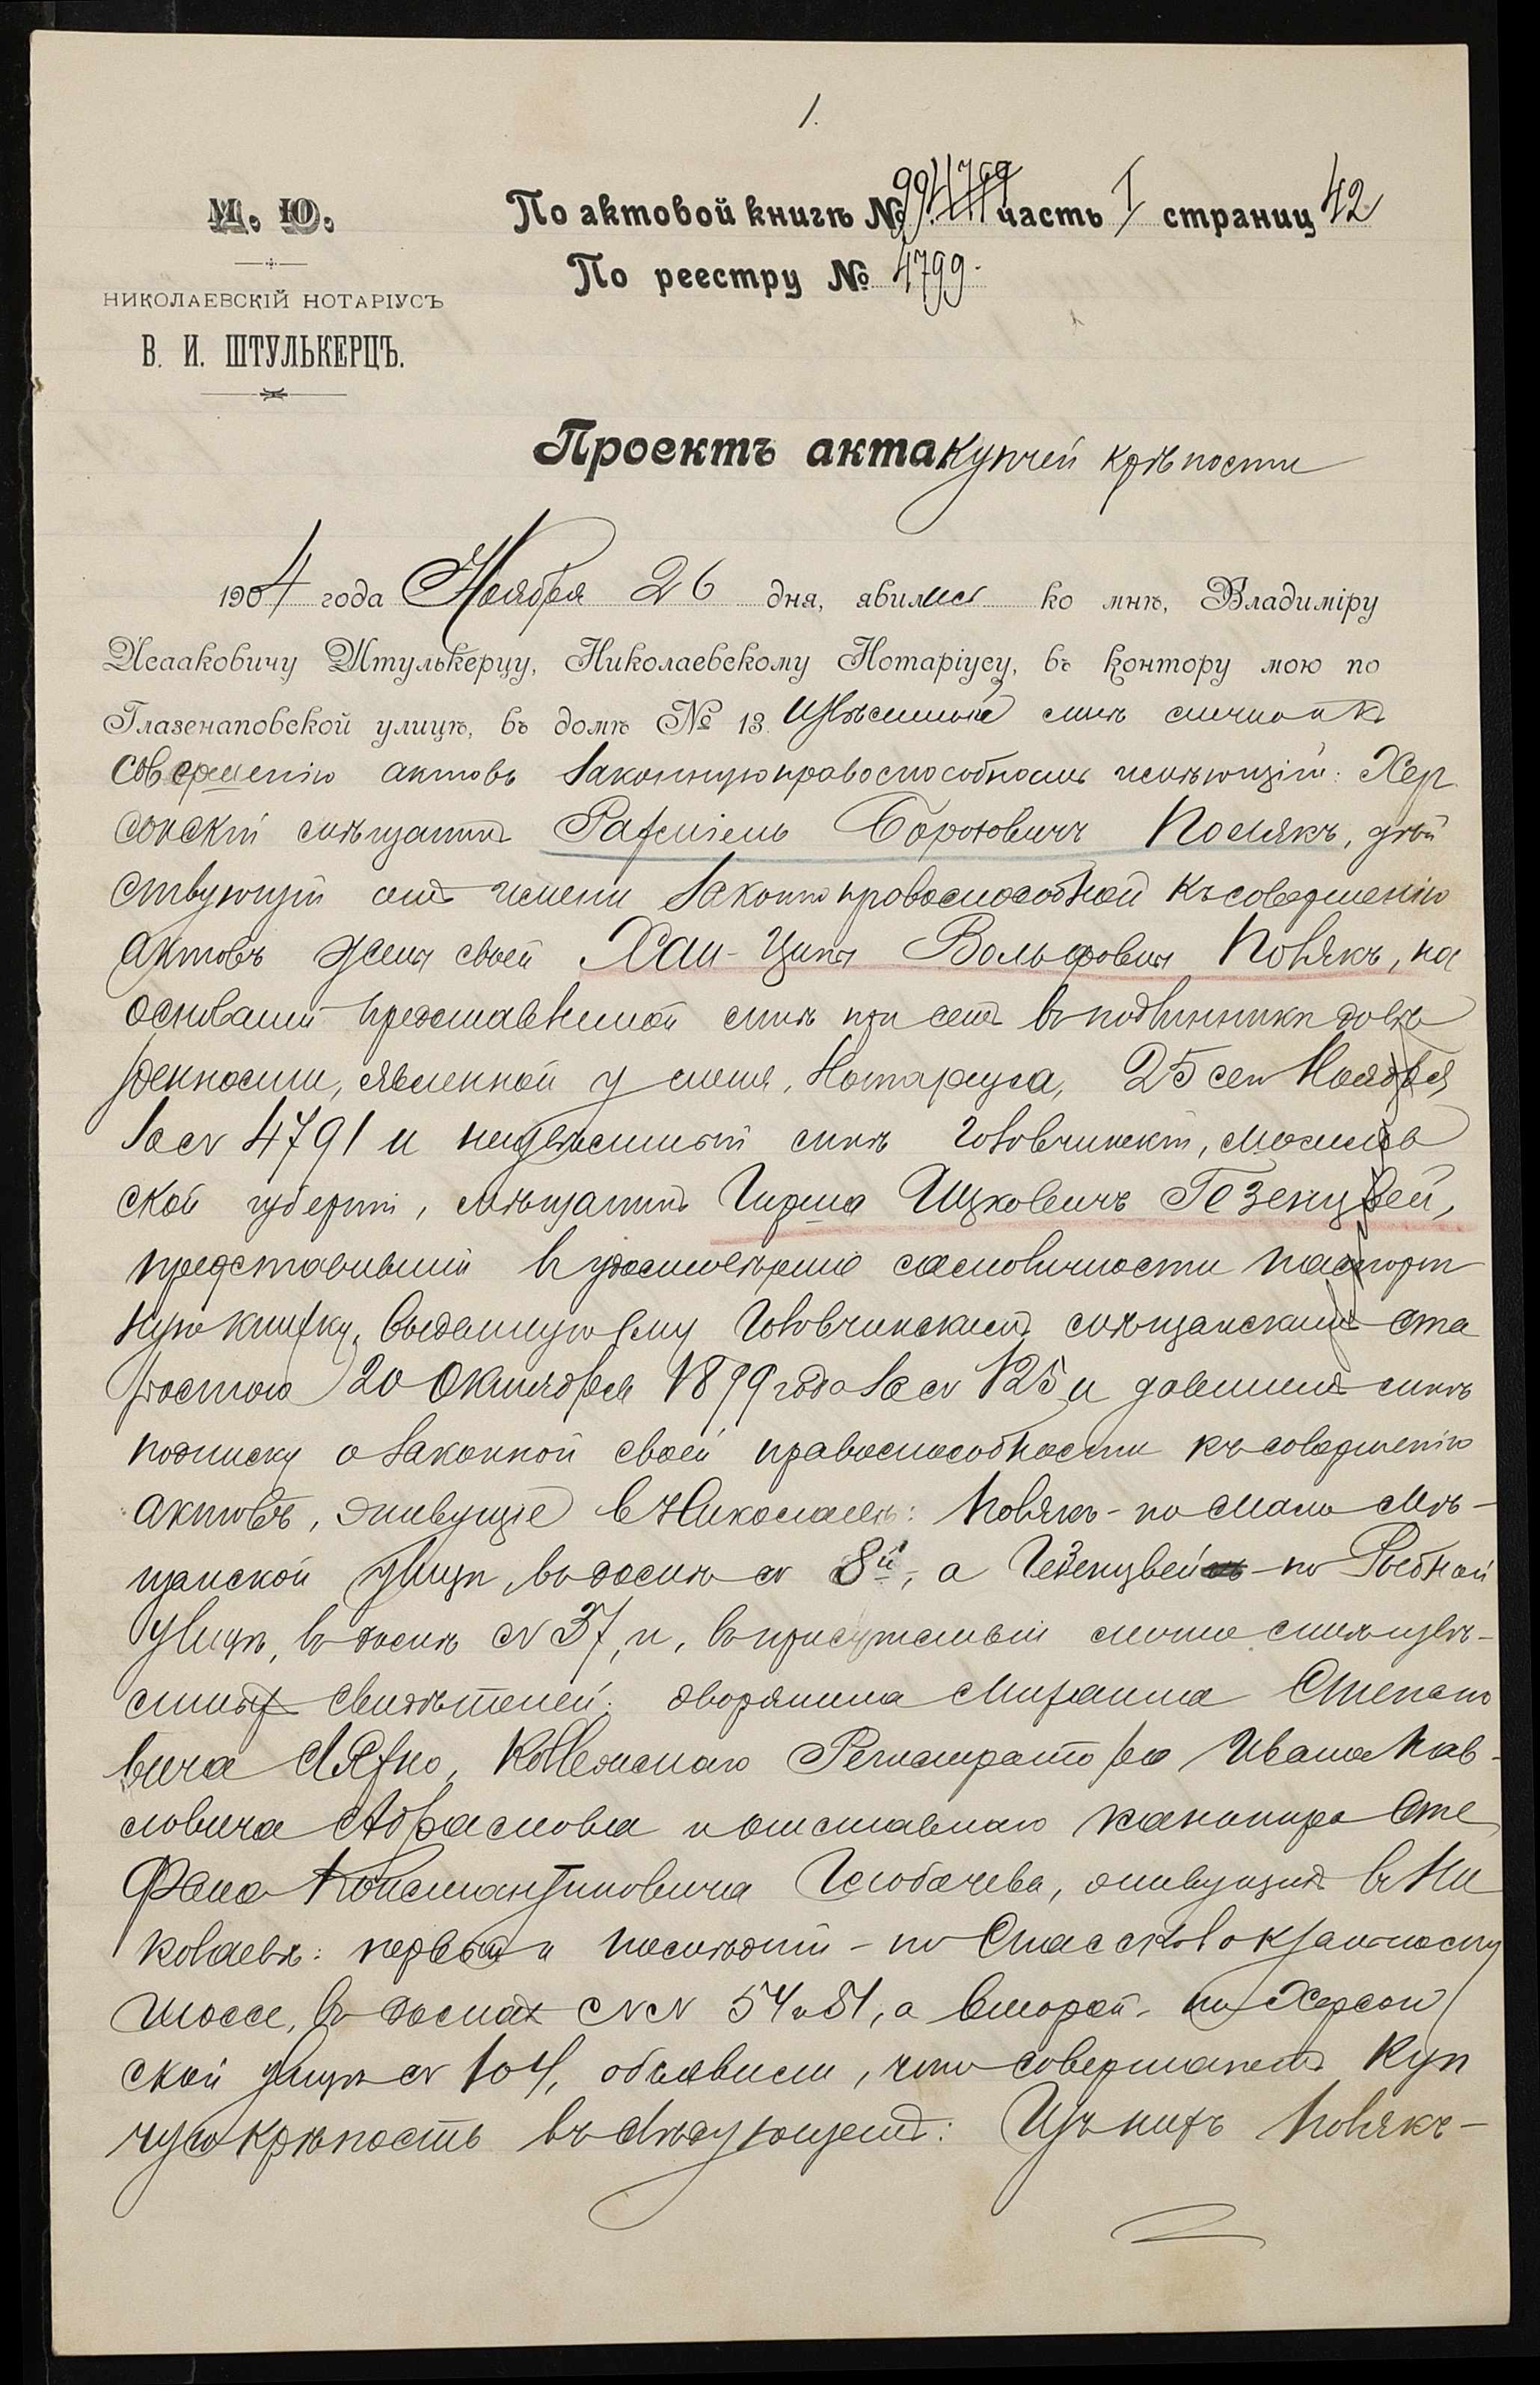 1.
М. Ю.
НИКОЛАЕВСКІЙ НОТАРІУСЪ
В. И. ШТУЛЬКЕРЦЪ.
По актовой книгѣ № 99 часть I страниц 42
По реестру № 4799
Проектъ акта купчей крѣпости
1904 года Ноября 26 дня, явились ко мнѣ, Владиміру
Исааковичу Штулькерцу, Николаевскому Нотаріусу, въ контору мою по
Глазенаповской улицѣ, въ домѣ № 13 извѣстный мнѣ лично и къ
совершенію актовъ законную правоспособность имѣющій: Хер
сонскій мѣщанинъ Рафаиль Боруховичъ Полякъ, дѣй
ствующій отъ имени законно правоспособной къ совершенію
актовъ жены своей Хаи-Ципы Вольфовны Полякъ, на
основаніи представленной мнѣ при семъ въ подлинникѣ довѣ
ренности, явленной у меня, Нотаріуса, 25 сего Ноября
за № 4791 и неизвѣстный мнѣ Головчинскій, Могилев
ской губерніи, мѣщанинъ Гирша Ицковичъ Гезенцвей,
представившій въ удостовѣреніе самоличности паспорт
ную книжку, выданную ему Головчинскимъ мѣщанскимъ ста
ростою 20 Октября 1899 года за № 125 и давшій мнѣ
подписку о законной своей правоспособности къ совершенію
актовъ, живущіе въ Николаевѣ: Полякъ - по Мало-Мѣ-
щанской улицѣ, въ домѣ № 8й, а Гезенцвей - по Рыбной
улицѣ, въ домѣ № 37, и, въ присутствіи лично мнѣ извѣ-
стныхъ свидѣтелей: дворянина Михаила Степано
вича Ляхно, Коллежскаго Регистратора Ивана Пав-
ловича Абрамова и отставнаго канонира Сте
фана Константиновича Голобачева, живущихъ въ Ни
колаевѣ: первый и послѣдній - по Спасскому
шоссе, въ домахъ №№ 54 и 51, а второй - по Херсон
ской улицѣ № 104, объявили, что совершаютъ куп
чую крѣпость въ слѣдующемъ: Изъ нихъ Полякъ-